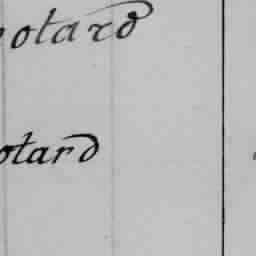 otard
otard